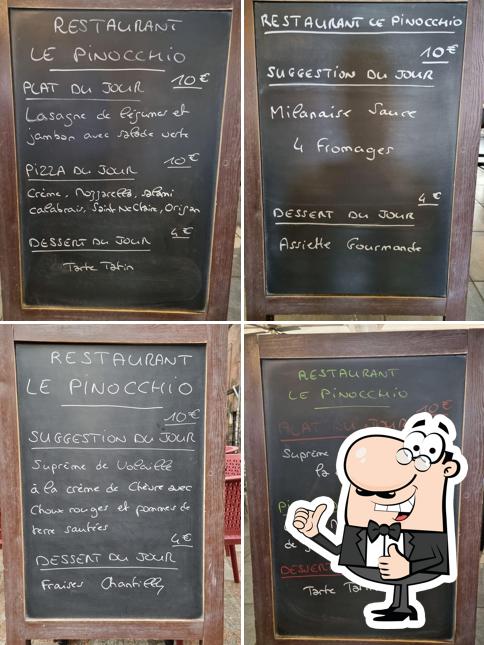 RESTAURANT
LE PINOCCHIO
10€
PLAT DU JOUR
Lasagne de légumes et
jambon avec salade verte
10€
PIZZA DU JOUR
Crème, Mozzarella, salami
calabrais, Saint Nectaire, Origan
4€
DESSERT DU JOUR
Tarte Tatin
RESTAURANT LE PINOCCHIO
10€
SUGGESTION DU JOUR
Milanaise Sauce
4 Fromages
4€
DESSERT DU JOUR
Assiette Gourmande
RESTAURANT
LE PINOCCHIO
10€
SUGGESTION DU JOUR
Suprême de Volaille
à la crème de Chèvre avec
Choux rouges et pommes de
terre sautées
4€
DESSERT DU JOUR
Fraises Chantilly
RESTAURANT
LE PINOCCHIO
10€
PLAT DU JOUR
Suprême
la
de
DESSERT
Tarte Tatin